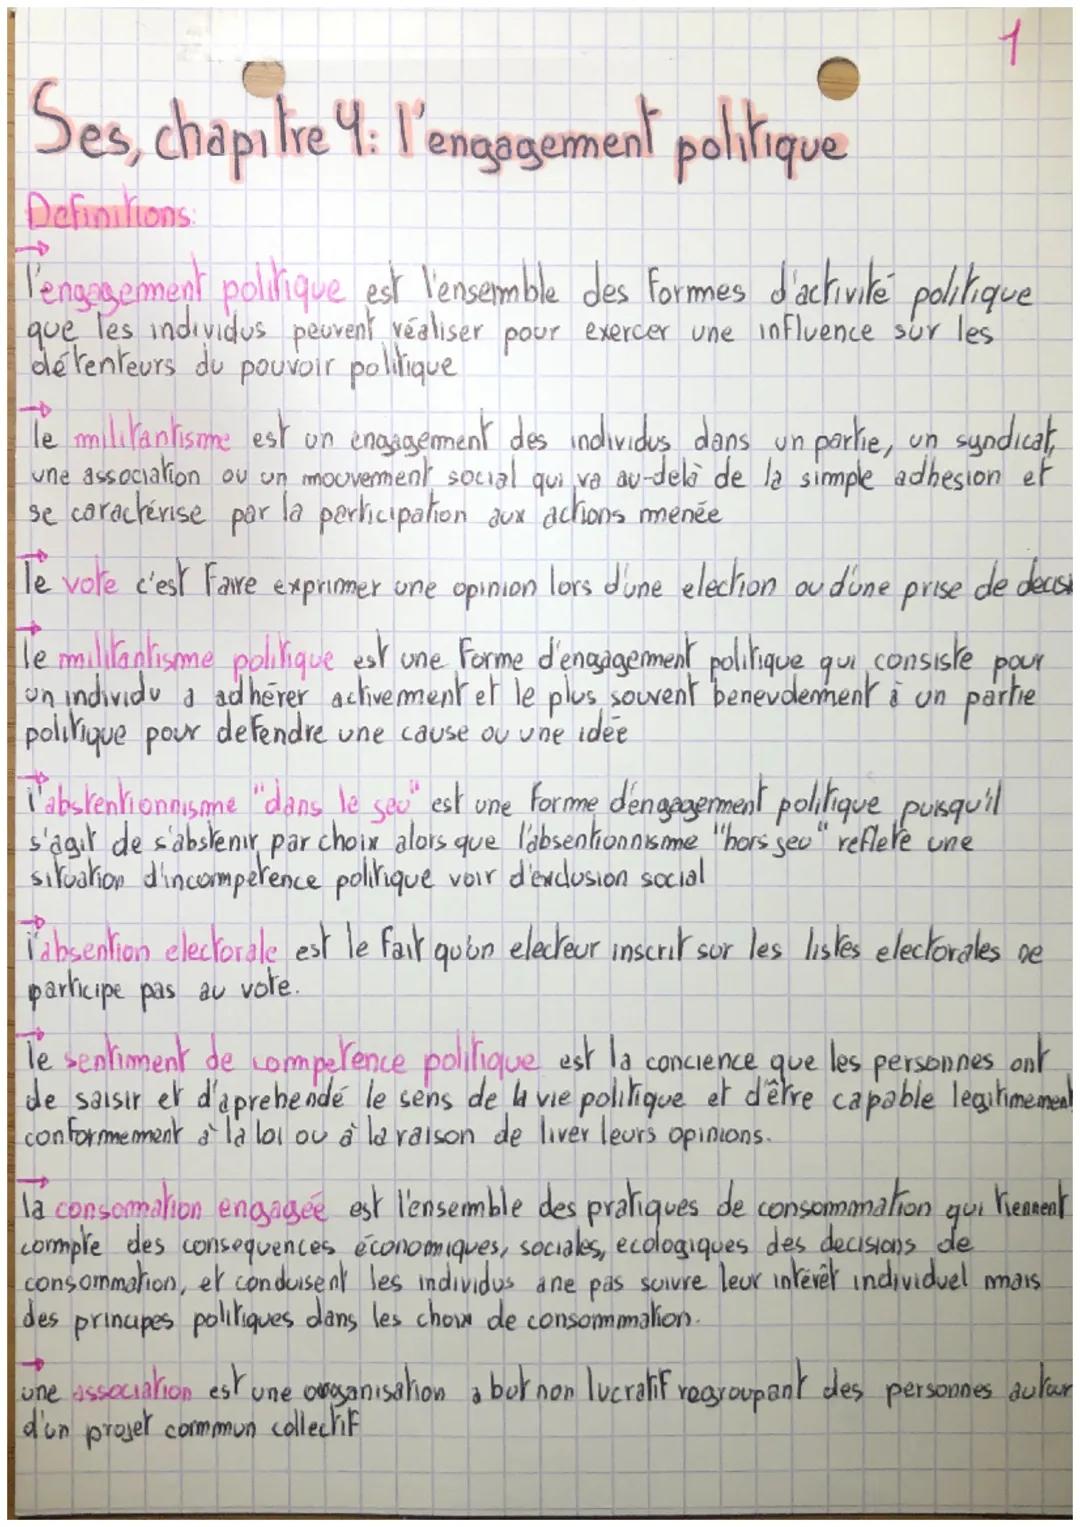 1
Ses, chapitre 4: l'engagement politique
Definitions:
→
l'engagement politique est l'ensemble des formes d'activité politique
que les individus peuvent réaliser pour exercer une influence sur les
détenteurs du pouvoir politique
→
le militantisme est un engagement des individus dans un partie, un syndicat,
une association ou un mouvement social qui va au-delà de la simple adhesion et
se caractérise par la participation aux actions menée
→
le vote c'est faire exprimer une opinion lors d'une election ou d'une prise de decisi
→
le militantisme politique est une forme d'engagement politique qui consiste pour
un individu a adhérer activement et le plus souvent benevolement à un partie
politique pour defendre une cause ou une idée
→
l'abstentionnisme "dans le jeu" est une forme d'engagement politique puisqu'il
s'agit de s'abstenir par choix alors que l'absentionnisme "hors jeu" reflete une
situation d'incompetence politique voir d'exclusion social
→
l'absention electorale est le fait qu'un electeur inscrit sur les listes electorales ne
participe pas au vote.
→
le sentiment de competence politique est la concience que les personnes ont
de saisir et d'aprehendé le sens de la vie politique et d'être capable legitimement
conformement à la loi ou à la raison de livrer leurs opinions.
→
la consommation engagée est l'ensemble des pratiques de consommation qui tiennent
compte des consequences économiques, sociales, ecologiques des decisions de
consommation, et conduisent les individus a ne pas suivre leur intérêt individuel mais
des principes politiques dans les choix de consommation.
→
une association est une organisation a but non lucratif regroupant des personnes autour
d'un projet commun collectif